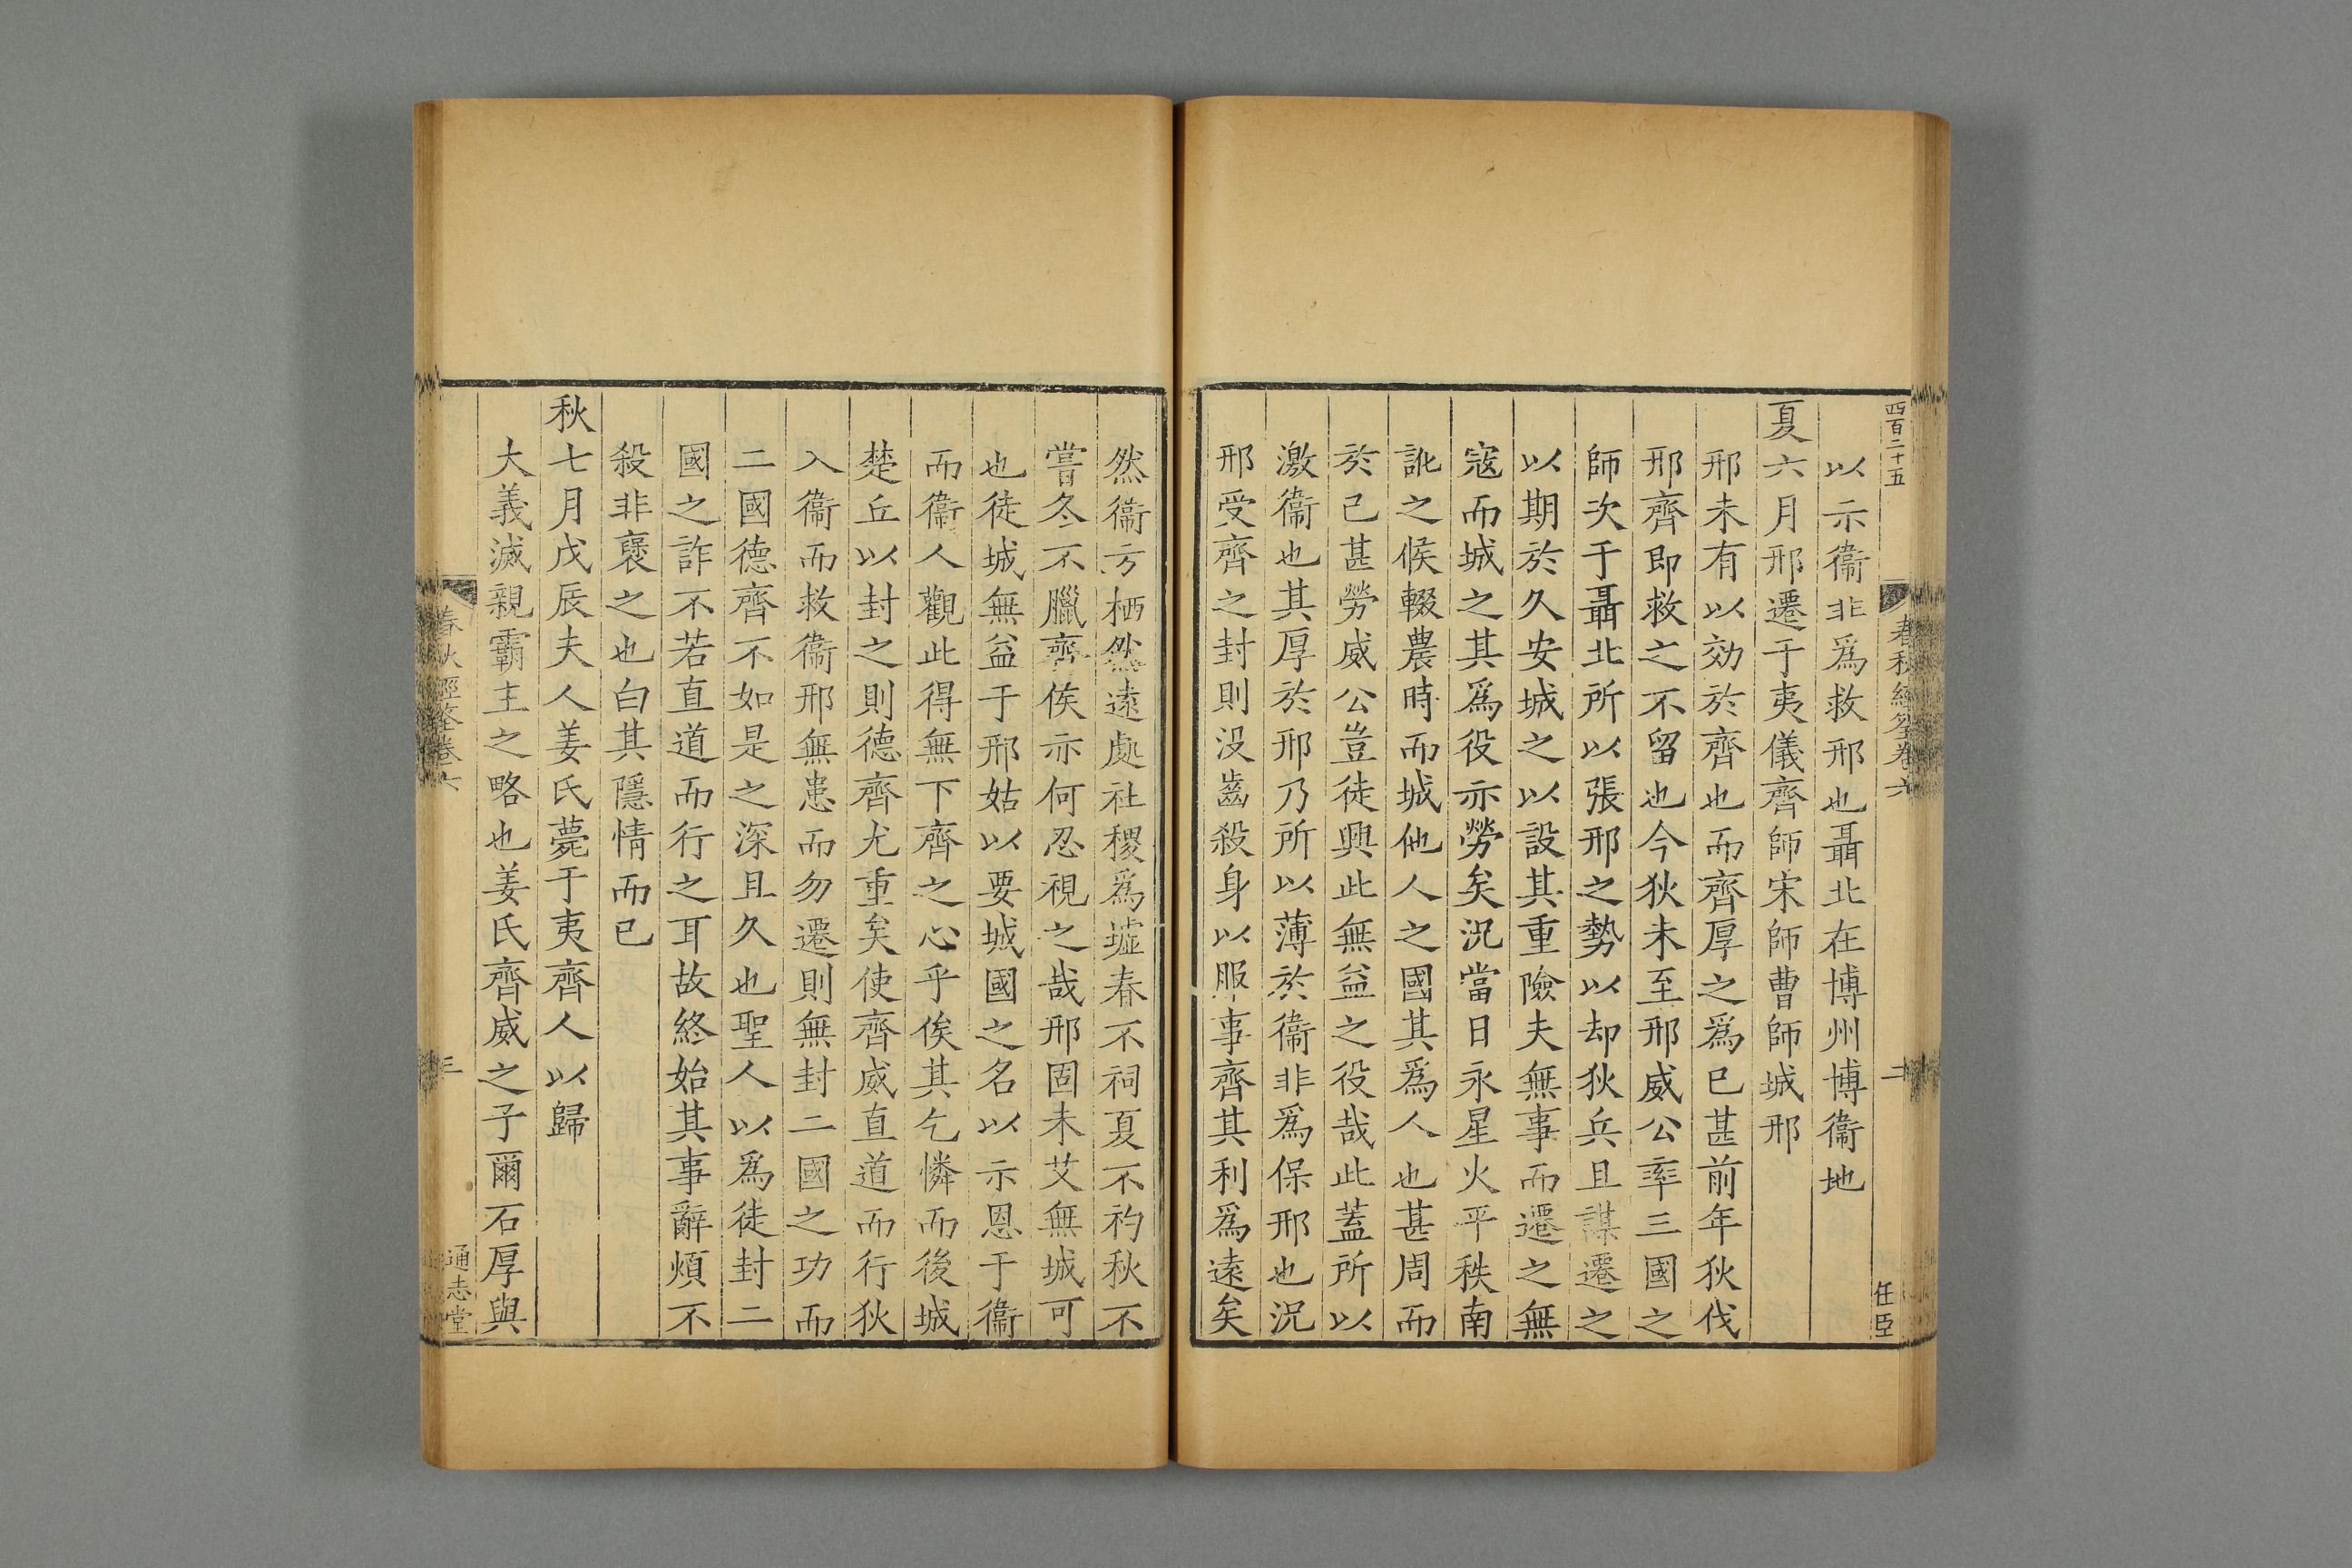 四百二十五
春秋經筌卷六
二
任臣
以示衞非爲救邢也聶北在博州博衞地
夏六月邢遷于夷儀齊師宋師曹師城邢
邢未有以効於齊也而齊厚之爲已甚前年狄伐
邢齊即救之不留也今狄未至邢威公率三國之
師次于聶北所以張邢之勢以却狄兵且謀遷之
以期於久安城之以設其重險夫無事而遷之無
寇而城之其爲役亦勞矣況當日永星火平秩南
訛之候輟農時而城他人之國其爲人也甚周而
於己甚勞威公豈徒興此無益之役哉此蓋所以
激衞也其厚於邢乃所以薄於衞非爲保邢也況
邢受齊之封則没齒殺身以服事齊其利爲遠矣
然衞方栖然遠處社稷爲墟春不祠夏不礿秋不
嘗冬不臘齊侯亦何忍視之哉邢固未艾無城可
也徒城無益于邢姑以要城國之名以示恩于衞
而衞人觀此得無下齊之心乎俟其乞憐而後城
楚丘以封之則德齊尤重矣使齊威直道而行狄
入衞而救衞邢無患而勿遷則無封二國之功而
二國德齊不如是之深且久也聖人以爲徒封二
國之詐不若直道而行之耳故終始其事辭煩不
殺非褒之也白其隱情而已
秋七月戊辰夫人姜氏薨于夷齊人以歸
大義滅親霸主之略也姜氏齊威之子爾石厚與
春秋經筌卷六
三
通志堂